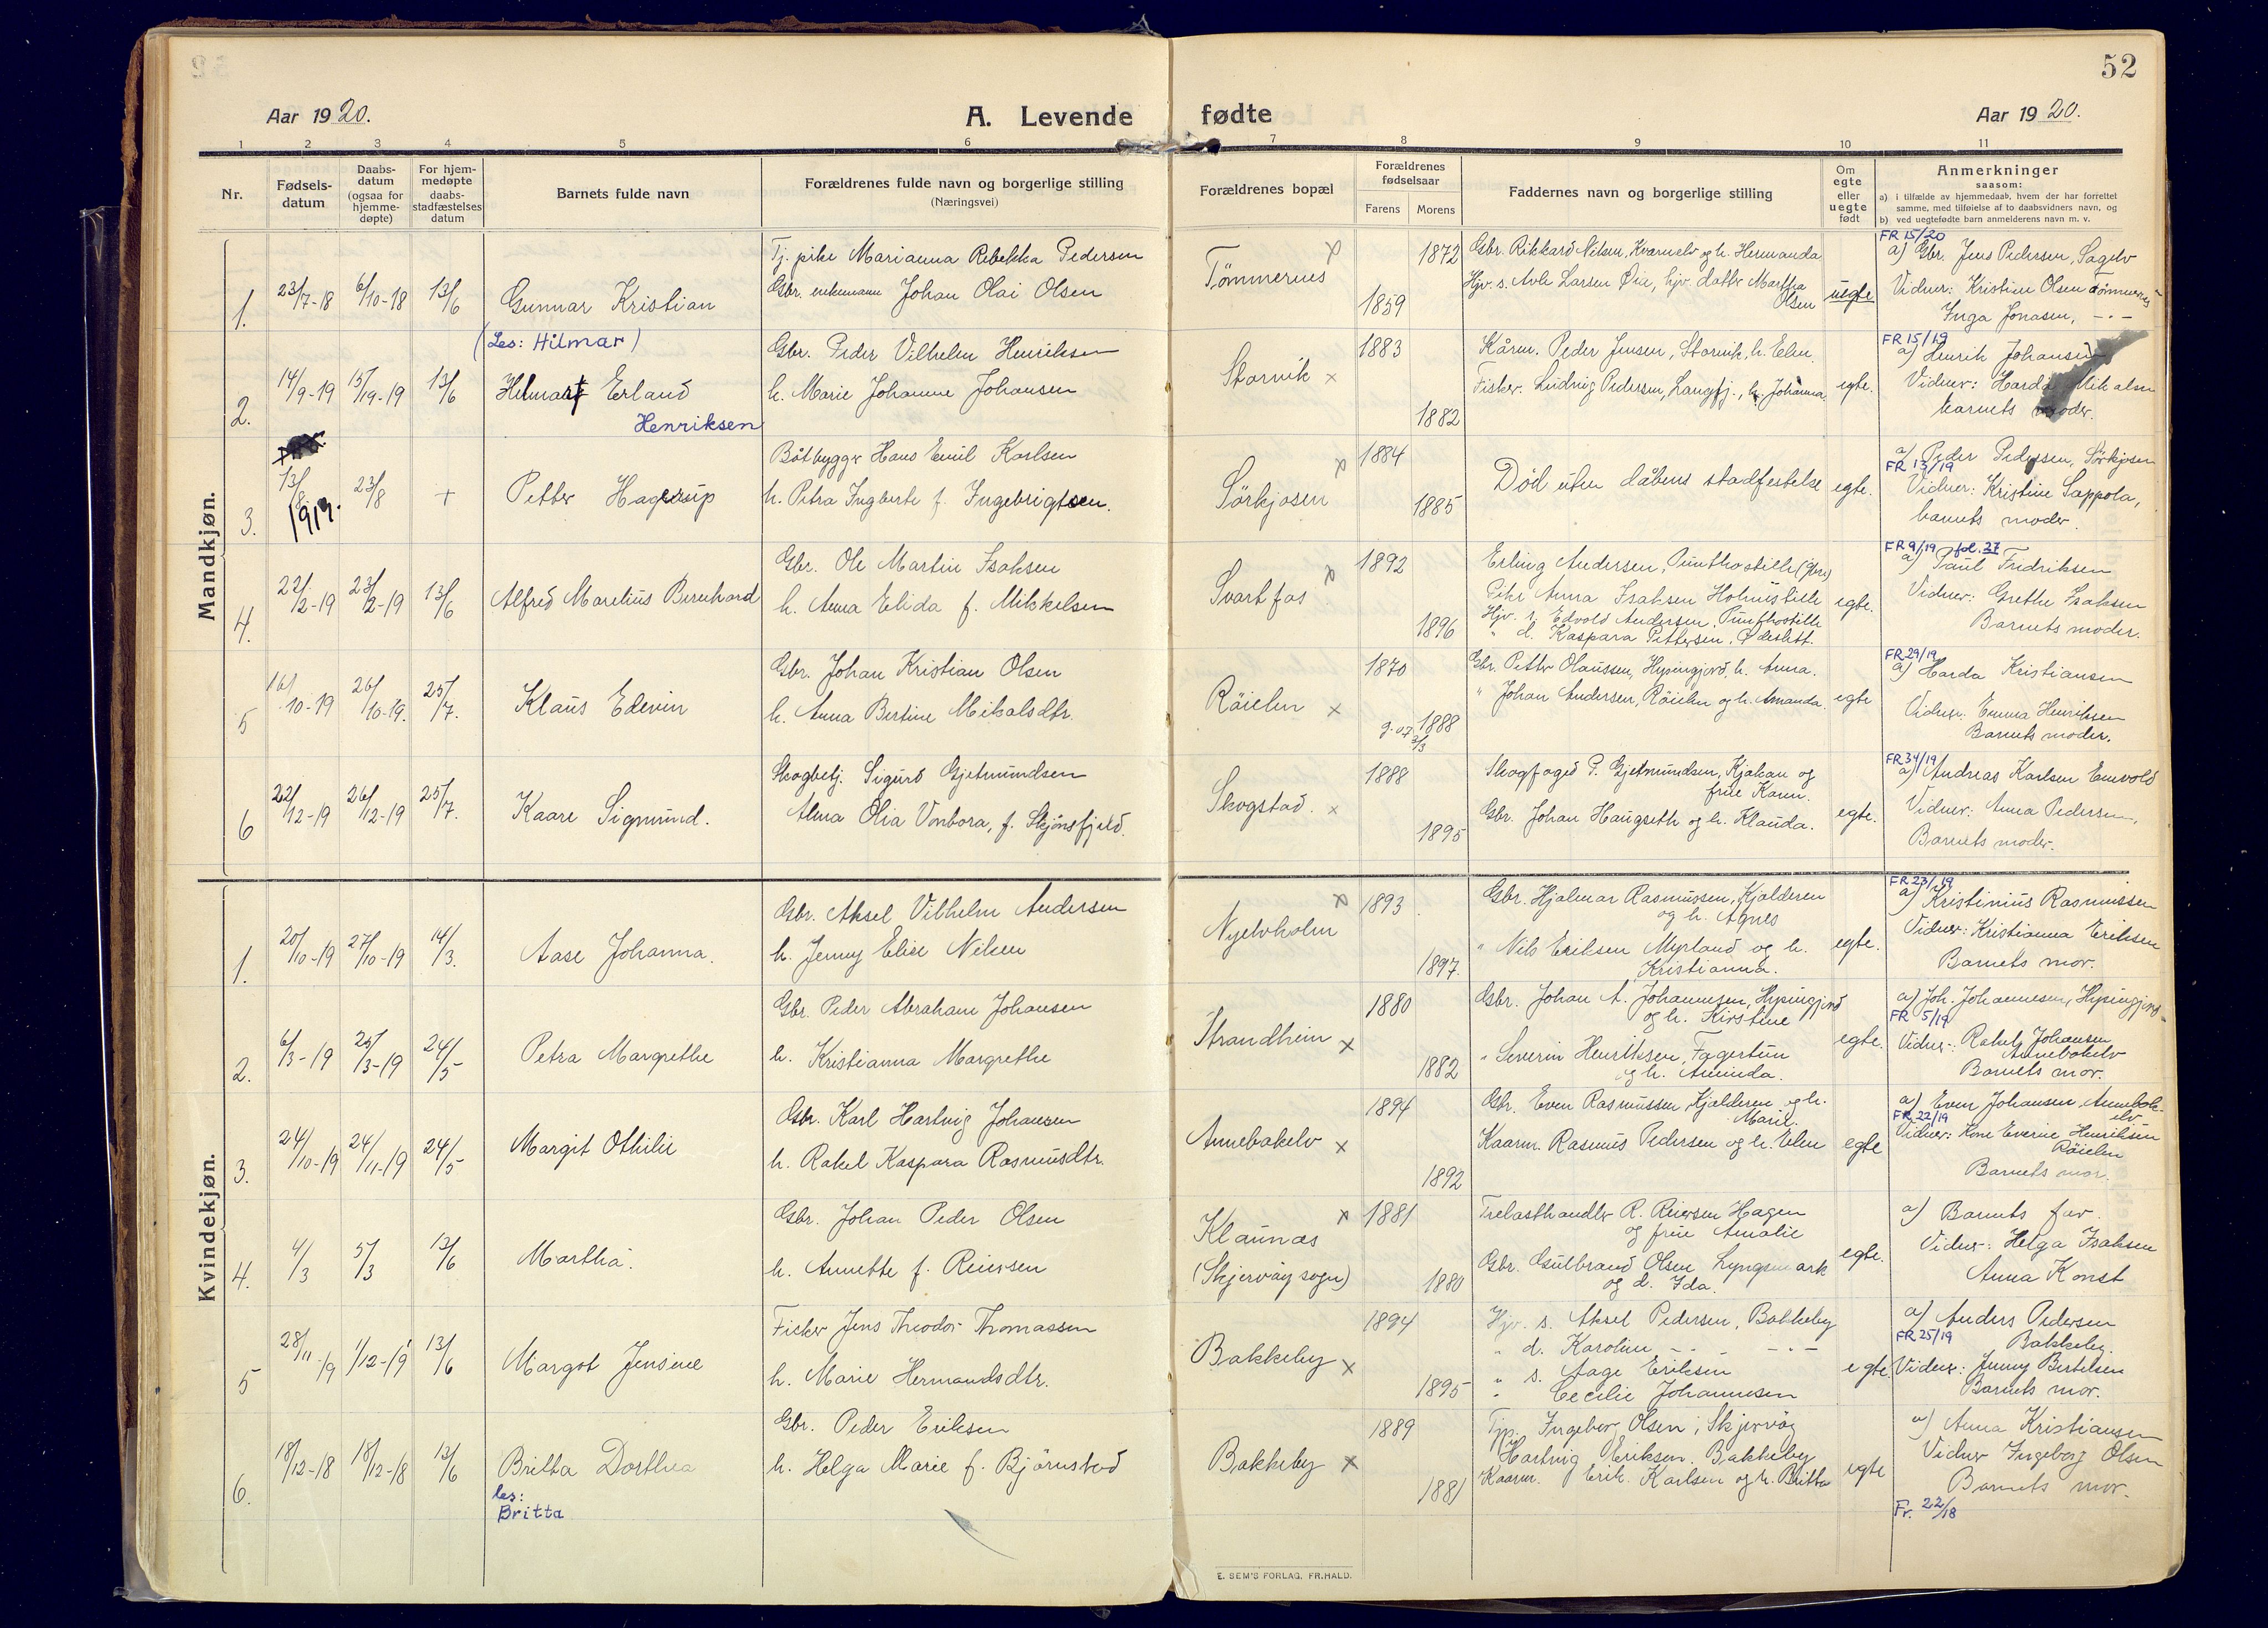 52
Aar 1920.
A. Levende fødte
Aar 1920.
1 2 3 4 5 6 7 8 9 10 11
Nr.
Fødsels-
datum
Daabs-
datum
(ogsaa for
hjemme-
døpte)
For hjem-
medøpte
daabs-
stadfæstelses
datum
Barnets fulde navn
Forældrenes fulde navn og borgerlige stilling
(Næringsvei)
Forældrenes bopæl
Forældrenes
fødselsaar
Farens Morens
Faddernes navn og borgerlige stilling
Om
egte
eller
uegte
født
Anmerkninger
saasom:
a) i tilfælde av hjemmedaab, hvem der har forrettet
samme, med tilføielse af to daabsvidners navn, og
b) ved uegtefødte barn anmelderens navn m. v.
Mandkjøn.
1.
23/7-18 6/10-18 13/6
Gunnar Kristian
Tj. pike Marianna Rebekka Pedersen
Gbr. enkemann Johan Olai Olsen
Tømmernes x
1872
1859
Gbr. Rikkard Nilsen, Kvænelv og h. Hermanda
Hjv. s. Avle Larsen Øie, hjv. datter Martha
Olsen
uegte
FR 15/20
a) Gbr. Jens Pedersen, Sagelv
Vidner: Kristine Olsen Tømmernes
Inga Jonasen, -"-
2.
14/9-19 15/19-19 13/6
(Les: Hilmar)
Helmart Erland
Henriksen
Gbr. Peder Vilhelm Henriksen
h. Marie Johanne Johansen
Storvik x
1883
1882
Kårm. Peder Jensen, Storvik, h. Elen
Fisker. Ludvig Pedersen, Langfj., h. Johanna
egte.
FR 15/19
a) Henrik Johansen
Vidner: Harda Mikalsen
barnets moder.
3.
13/8 1919. 23/8 +
Petter Hagerup
Båtbygger Hans Emil Karlsen
h. Petra Ingberte f. Ingebrigtsen.
Sørkjosen x
1884
1885
Død uten dåbens stadfestelse
egte.
a) Peder Pedersen, Sørkjosen
FR 13/19
Vidner: Kristine Sappola,
barnets moder.
4.
22/2-19 23/2-19 13/6
Alfred Marelius Bernhard
Gbr. Ole Martin Isaksen
h. Anna Elida f. Mikkelsen
Svartfos x
1892
1896
Erling Andersen, Punthostille (Gbr.)
Pike Anna Isaksen Holmestille
Hjv. s. Edvold Andersen, Punthostille
" d. Kaspara Pettersen, Ødeslett.
egte.
FR 9/19 fol. 27
a) Paul Fredriksen
Vidner: Grethe Isaksen
Barnets moder.
5
16/10-19 26/10-19. 25/7.
Klaus Edevin
Gbr. Johan Kristian Olsen
h. Anna Bertine Mikalsdtr.
Røielen x
1870
g. 07 2/3 1888
Gbr. Petter Olaussen, Hysingjord, h. Anna.
" Johan Andersen, Røielen og h. Amanda.
egte
FR 29/19
a) Harda Kristiansen
Vidner: Emma Henriksen
Barnets moder.
6
22/12-19 26/12-19 25/7.
Kaare Sigmund.
Skogbetj. Sigurd Gjetmundsen
Alma Olia Vonbora, f. Skjønsfjeld.
Skogstad. x
1888
1895
Skogfoged P. Gjetmundsen, Kjøkan og
frue Karen.
Gbr. Johan Haugseth og h. Klauda.
egte.
FR 34/19
a) Andreas Karlsen Einevold
Vidner: Anna Pedersen,
Barnets moder.
Kvindekjøn.
1.
20/10-19 27/10-19 14/3.
Aase Johanna.
Gbr. Aksel Vilhelm Andersen
h. Jenny Elise Nilsen
Nyelvholm x
1893
1897.
Gbr. Hjalmar Rasmussen, Kjelderen
og h. Agnes
" Nils Eriksen Myrland og h.
Kristianna.
egte.
FR 23/19
a) Kristinius Rasmussen
Vidner: Kristianna Eriksen
Barnets mor.
2.
6/3-19 25/3-19 24/5
Petra Margrethe
Gbr. Peder Abraham Johansen
h. Kristianna Margrethe
Strandheim x
1880
1882
Gbr. Johan A. Johannesen, Hysingjord
og h. Kirstine
" Severin Henriksen, Fagertun
og h. Aminda.
egte.
a) Joh. Johannesen, Hysingjord
FR 5/19
Vidner: Rakel Johansen
Annebakelv
Barnets mor.
3.
24/10-19 24/11-19 24/5
Margit Othilie
Gbr. Karl Hartvig Johansen
h. Rakel Kaspara Rasmusdtr.
Annebakelv x
1894
1892
Gbr. Even Rasmussen, Kjelderen og h.
Marie.
Kaarm. Rasmus Pedersen og h. Elen
egte
a) Even Johansen Annebak-
elv
FR 22/19
Vidner: Kone Everine Henriksen
Røielen
Barnets mor.
4.
4/3 5/3 13/6
Martha.
Gbr. Johan Peder Olsen
h. Annette f. Reiersen
Klaunæs x
(Skjervøy sogn)
1881
1880
Trelasthandler R. Reiersen Hagen
og frue Amalie
Gbr. Gulbrand Olsen Lyngsmark
og d. Ida.
egte.
a) Barnets far.
Vidner: Helga Isaksen
Anna Konst
5
28/11-19 1/12-19 13/6
Margot Jensine
Fisker Jens Theodor Thomassen
h. Marie Hermandsdtr.
Bakkeby x
1894
1895
Hjv. s. Aksel Pedersen, Bakkeby
" d. Karoline -"-
" s. Aage Eriksen
" Cecilie Johannesen
egte.
a) Anders Pedersen
FR 25/19 Bakkeby.
Vidner: Jenny Bertelsen
Barnets mor.
6.
18/12-18 18/12-18 13/6
Britta Dorthea
les:
Britta
Gbr. Peder Eriksen
h. Helga Marie f. Bjørnstad
Bakkeby x
1889
1881
Tjp. Ingeborg Olsen, Skjervøy
Hartvig Eriksen, Bakkeby
Kaarm. Erik Karlsen og h. Britta
egte
a) Anna Kristiansen
Vidner Ingeborg Olsen
Barnets mor.
Fr. 22/18
E. SEM'S FORLAG, FR.HALD.